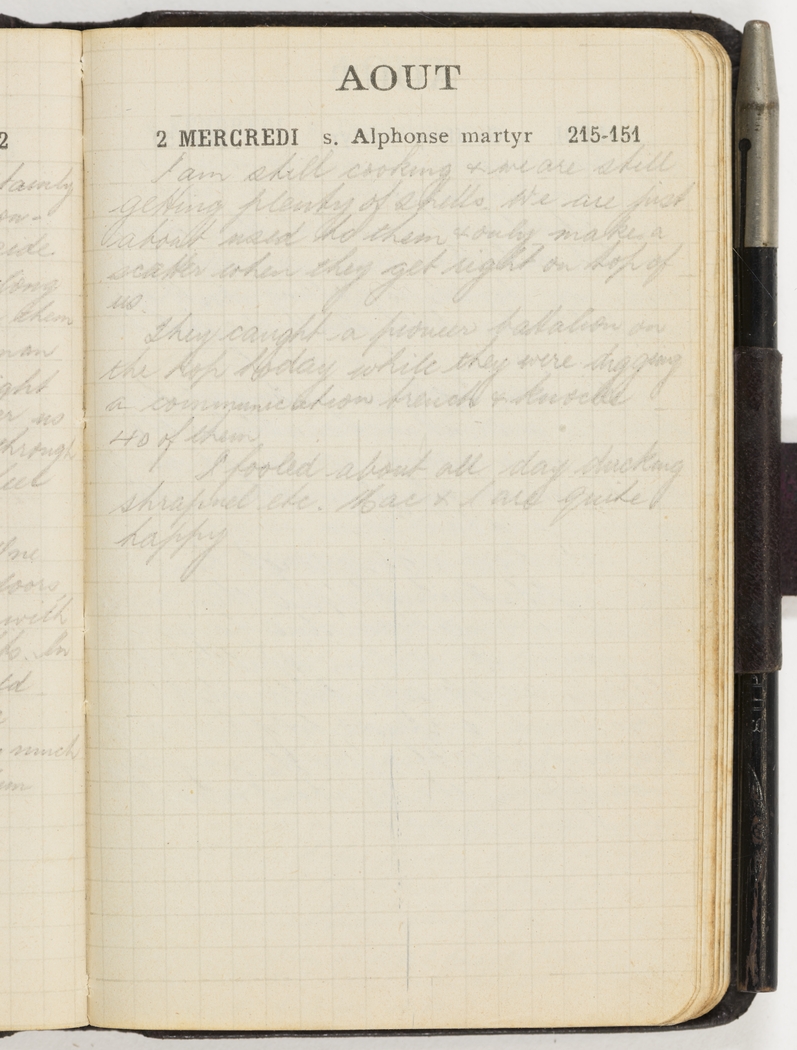 2
tainly
on-
side.
long
them
man
ight
er us
through
feel
One
doors
with
In
ld
much
AOUT
2 MERCREDI s. Alphonse martyr 215-151
I am still cooking & we are still
getting plenty of shells. We are just
about used to them & only make a
scatter when they get right on top of
us.
They caught a pioneer battalion on
the hop today while they were digging
a communication trench & knocked
40 of them
I fooled about all day ducking
shrapnel etc. Mac & I are quite
happy